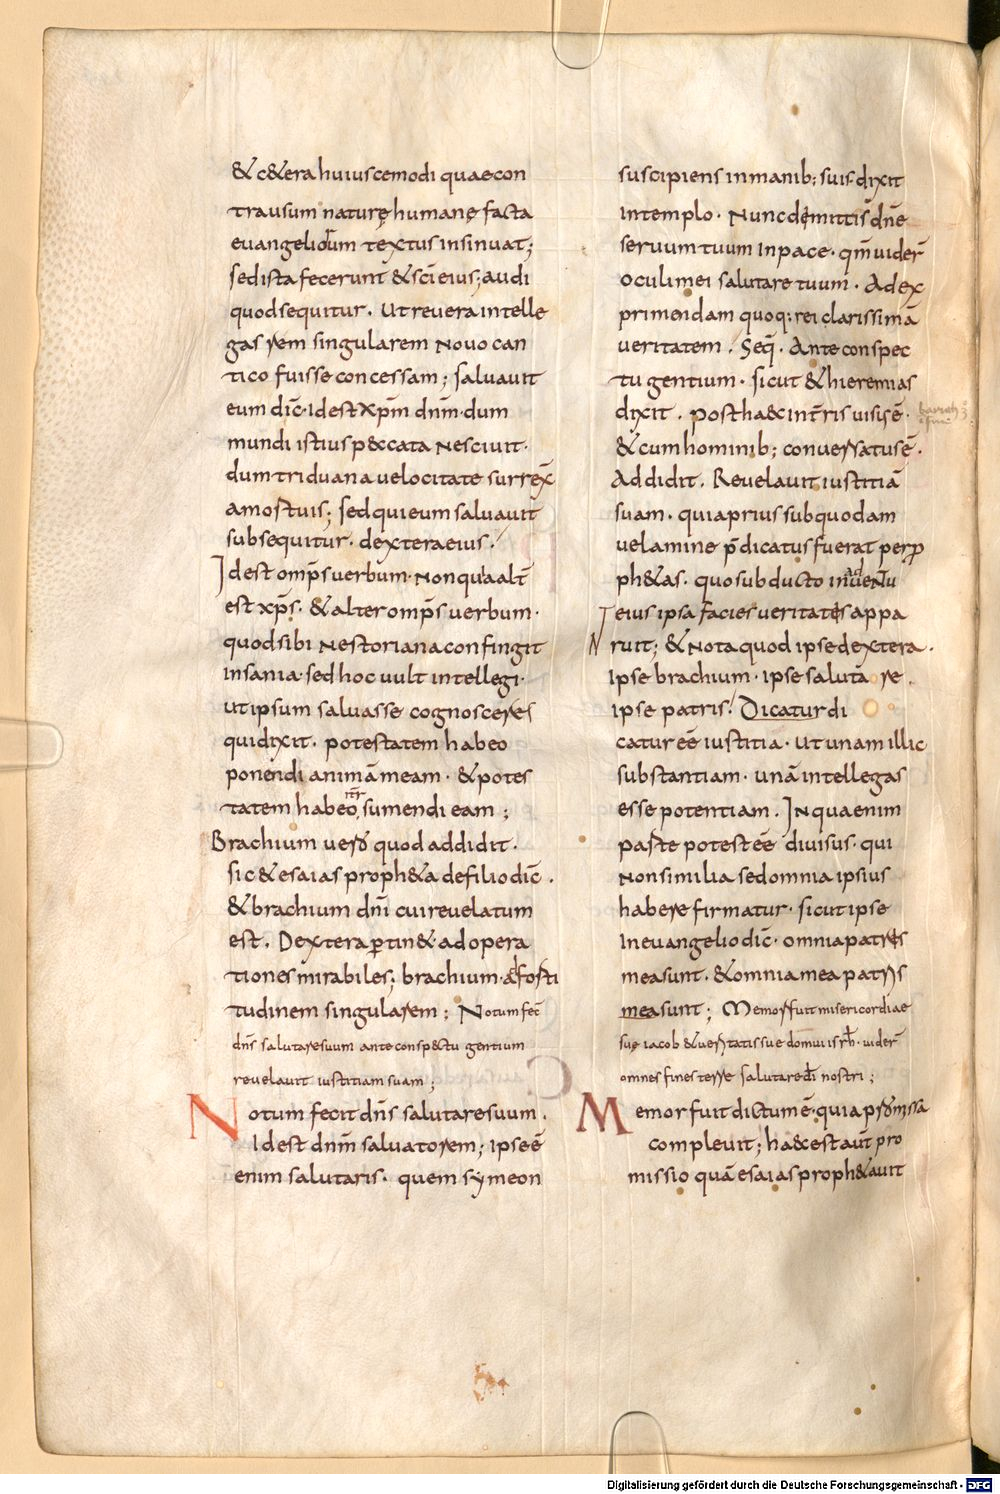 & c&era huiuscemodi quae con
tra usum naturę humanę facta
euangeliorum textus insinuat;
sed ista fecerunt & sc̄i eius; audi
quod sequitur. Ut reuera intelle
gas rem singularem nouo can
tico fuisse concessam; saluauit
eum dic̄· Idest xp̄m dn̄m· dum
mundi istius peccata nesciuit·
dum triduana uelocitate surrex̄
a mortuis; sed qui eum saluauit
subsequitur· dextera eius.
Idest omp̄s uerbum· non quia alt̄
est xp̄s· & alter omp̄s uerbum·
quod sibi nestoriana confingit
insania· sed hoc uult intellegi·
ut ipsum saluasse cognosceres
qui dixit· potestatem habeo
ponendi animā meam· & potes
tatem habeo iter̄ sumendi eam;
Brachium uero quod addidit·
sic & esaias proph&a de filio dic̄.
& brachium dn̄i cui reuelatum
est. Dextera ꝑtin& ad opera
tiones mirabiles; brachium· ad forti
tudinem singularem; Notum fec̄
dn̄s salutare suum ante conspectu gentium
reuelauit iustitiam suam;
Notum fecit dn̄s salutare suum.
Idest dn̄m saluatorem; ipse ē
enim salutaris· quem symeon
suscipiens in manib; suis dixit
in templo· Nunc demittis dn̄e
seruum tuum in pace· qm̄ uider̄
oculi mei salutare tuum· Ad ex
primendam quoq; rei clarissimā
ueritatem. Seq̄. Ante conspec
tu gentium· sicut & hieremias
dixit. post haec in tr̄ris uisus ē·
& cum hominib; conuersatus ē.
Addidit. Reuelauit iustitiā
suam· quia prius sub quodam
uelamine p̄dicatus fuerat per pro
ph&as· quo subducto in aduentu
eius ipsa facies ueritatis appa
ruit; & nota quod ipse dextera.
ipse brachium· ipse saluta re.
ipse patris. Dicatur di
catur eē iustitia· ut unam illic
substantiam· unā intellegas
esse potentiam. In qua enim
parte potest eē diuisus· qui
non similia sed omnia ipsius
habere firmatur· sicut ipse
in euangelio dic̄· omnia patris
mea sunt· & omnia mea patris
mea sunt; Memor fuit misericordiae
suę iacob & ueritatis suę domui isrl̄· uider̄
omnes fines terre salutare dī nostri;
Memor fuit dictum ē· quia promissa
compleuit; haec est aut̄ pro
missio quā esaias proph&auit
Digitalisierung gefördert durch die Deutsche Forschungsgemeinschaft - DFG